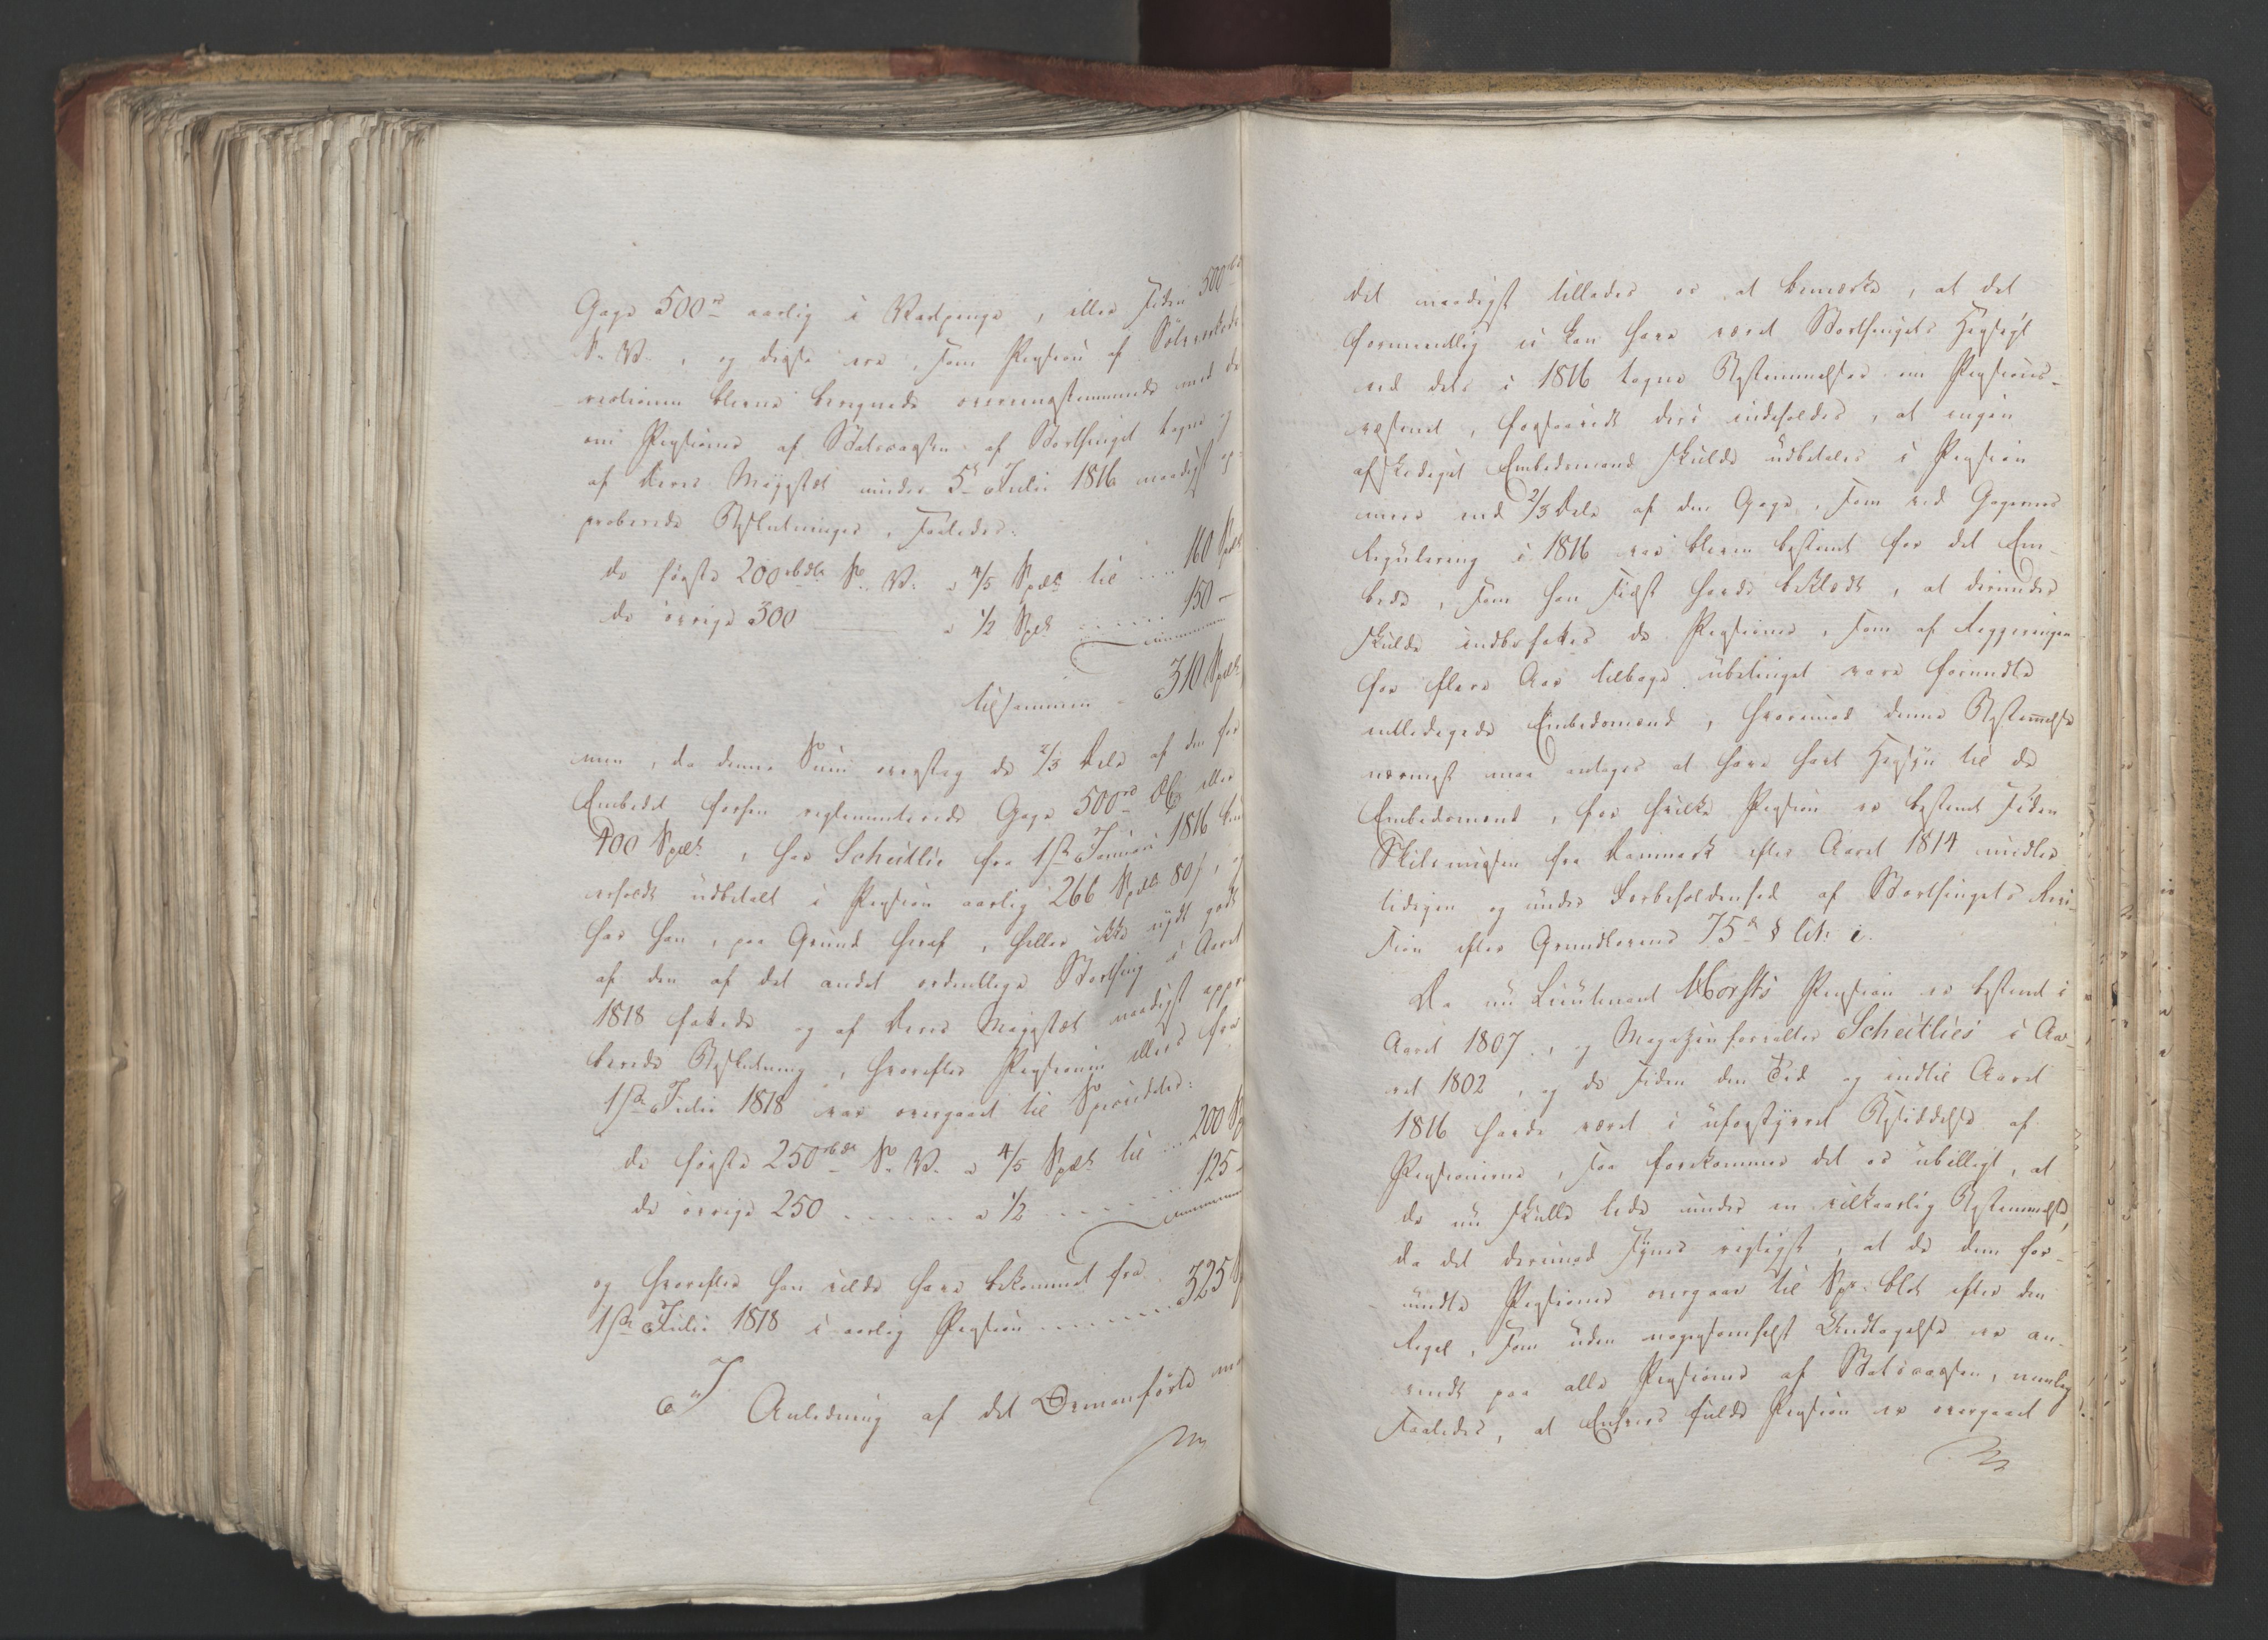 Gage 500rd aarlig i Wadpenge, eller siden 500rbd
S. V., og disse ere, som Pension af Sølvværkets
bleven beregnede overeensstemmende med de
om Pensioner af Statscassen af Storthinget tagne og
af Deres Majestæt under 5te Julii 1816 naadigst ap-
proberede Beslutninger, saaledes:
de første 200rbdlr S. V. a 4/5 Spdlr til .... 160 Spdlr
de øvrige 300 — a 1/2 Spdlr ...... 150 —
tilsammen - 310 Spdlr
men, da denne Sum oversteg de 2/3 Dele af den for
Embedet forhen reglementerede Gage 500rd eller
400 Spdlr, har Scheitlie fra 1ste Januar 1816 kun
erholdt udbetalt i Pension aarlig 266 Spdlr 80 s, og
har han, paa Grund heraf, heller ikke nydt godt
af den af det andet ordentlige Storthing i Aaret
1818 fattede og af Deres Majestæt naadigst appro-
berede Beslutning, hvorefter Pensionen ellers fra
1ste Julii 1818 var overgaaet til Speciedaler:
de første 250rbdlr S. V. a 4/5 Spdlr til ... 200 Sp
de øvrige 250 ...... a 1/2 ...... 125 -
og hvorefter han vilde have bekommet fra
1ste Julii 1818 i aarlig Pension ........ 325 Sp
I Anledning af det Ovenanførte maa
det naadigst tillades os at bemærke, at det
formeentlig ei kan have været Storthingets Hensigt
ved dets i 1816 tagne Bestemmelser om Pensions-
væsenet, forsaavidt deri indeholdes, at ingen
afskediget Embedsmand skulde udbetales i Pension
mere end 2/3 Dele af den Gage, som ved Gagernes
Regulering i 1816 var bleven bestemt for det Em-
bede, som han sidst havde beklædt, at derunder
skulde indbefattes de Pensioner, som af Regjeringen
for flere Aar tilbage ubetinget vare forundte
entledigede Embedsmænd, hvorimod denne Bestemmelse
nærmest maa antages at have havt Hensyn til de
Embedsmænd, for hvilke Pension er bestemt siden
Skilsmissen fra Danmark efter Aaret 1814 midler-
tidigen og under Forbeholdenhed af Storthingets Revi-
sion efter Grundlovens 75de § lit: i.
Da nu Lieutenant Morsts Pension er bestemt i
Aaret 1807, og Magazinforvalter Scheitlies i Aa-
ret 1802, og de siden den Tid og indtil Aaret
1816 havde været i uforstyrret Besiddelse af
Pensionerne, saa forekommer det os ubilligt, at
de nu skulle lide under en vilkaarlig Bestemmelse,
da det derimod synes rigtigst, at de dem for-
undte Pensioner overgaae til Sps. blot efter den
Regel, som uden nogensomhelst Undtagelse er an-
vendt paa alle Pensioner af Statscassen, nemlig
saaledes, at Enhvers fulde Pension er overgaaet